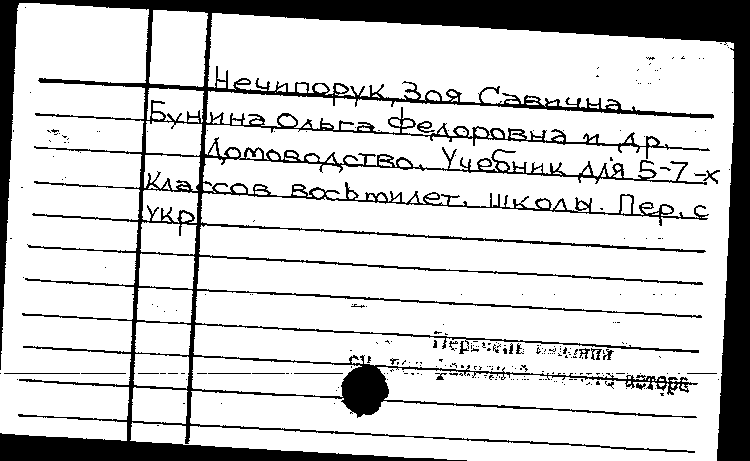 Нечипорук, Зоя Савична,
Бунина, Ольга Федоровна и др.
Домоводство. Учебник для 5-7-х
классов восьмилет. школы. Пер. с
укр.
Перечень изданий
см. под фамилией первого автора